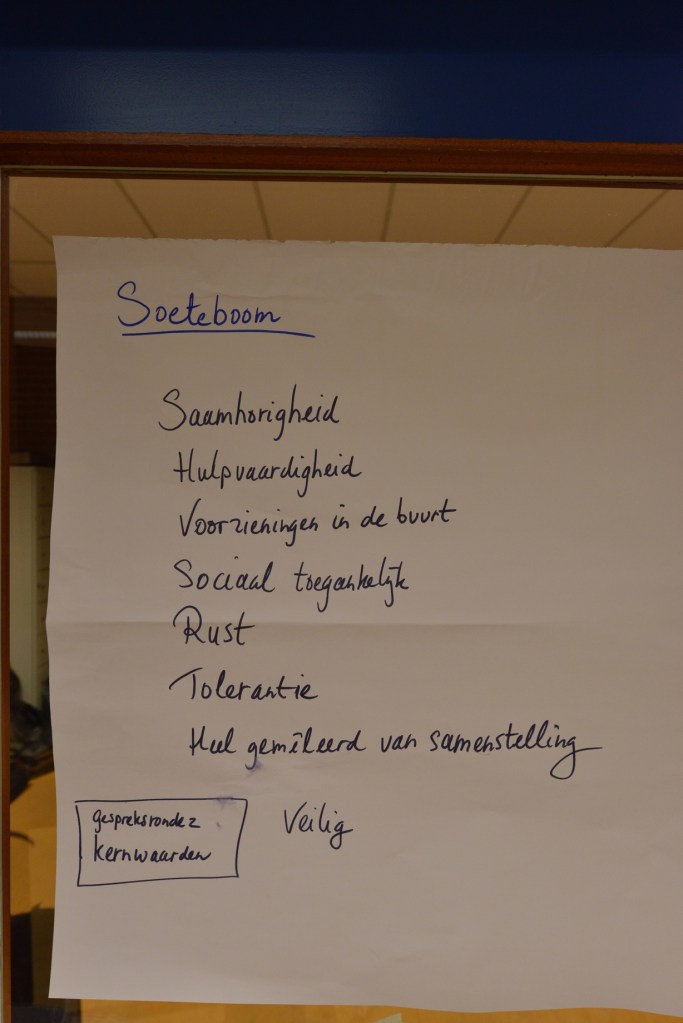 Soeteboom
Saamhorigheid
Hulpvaardigheid
Voorzieningen in de buurt
Sociaal toegankelijk
Rust
Tolerantie
Heel gemêleerd van samenstelling
Veilig
gespreksronde 2
kernwaarden